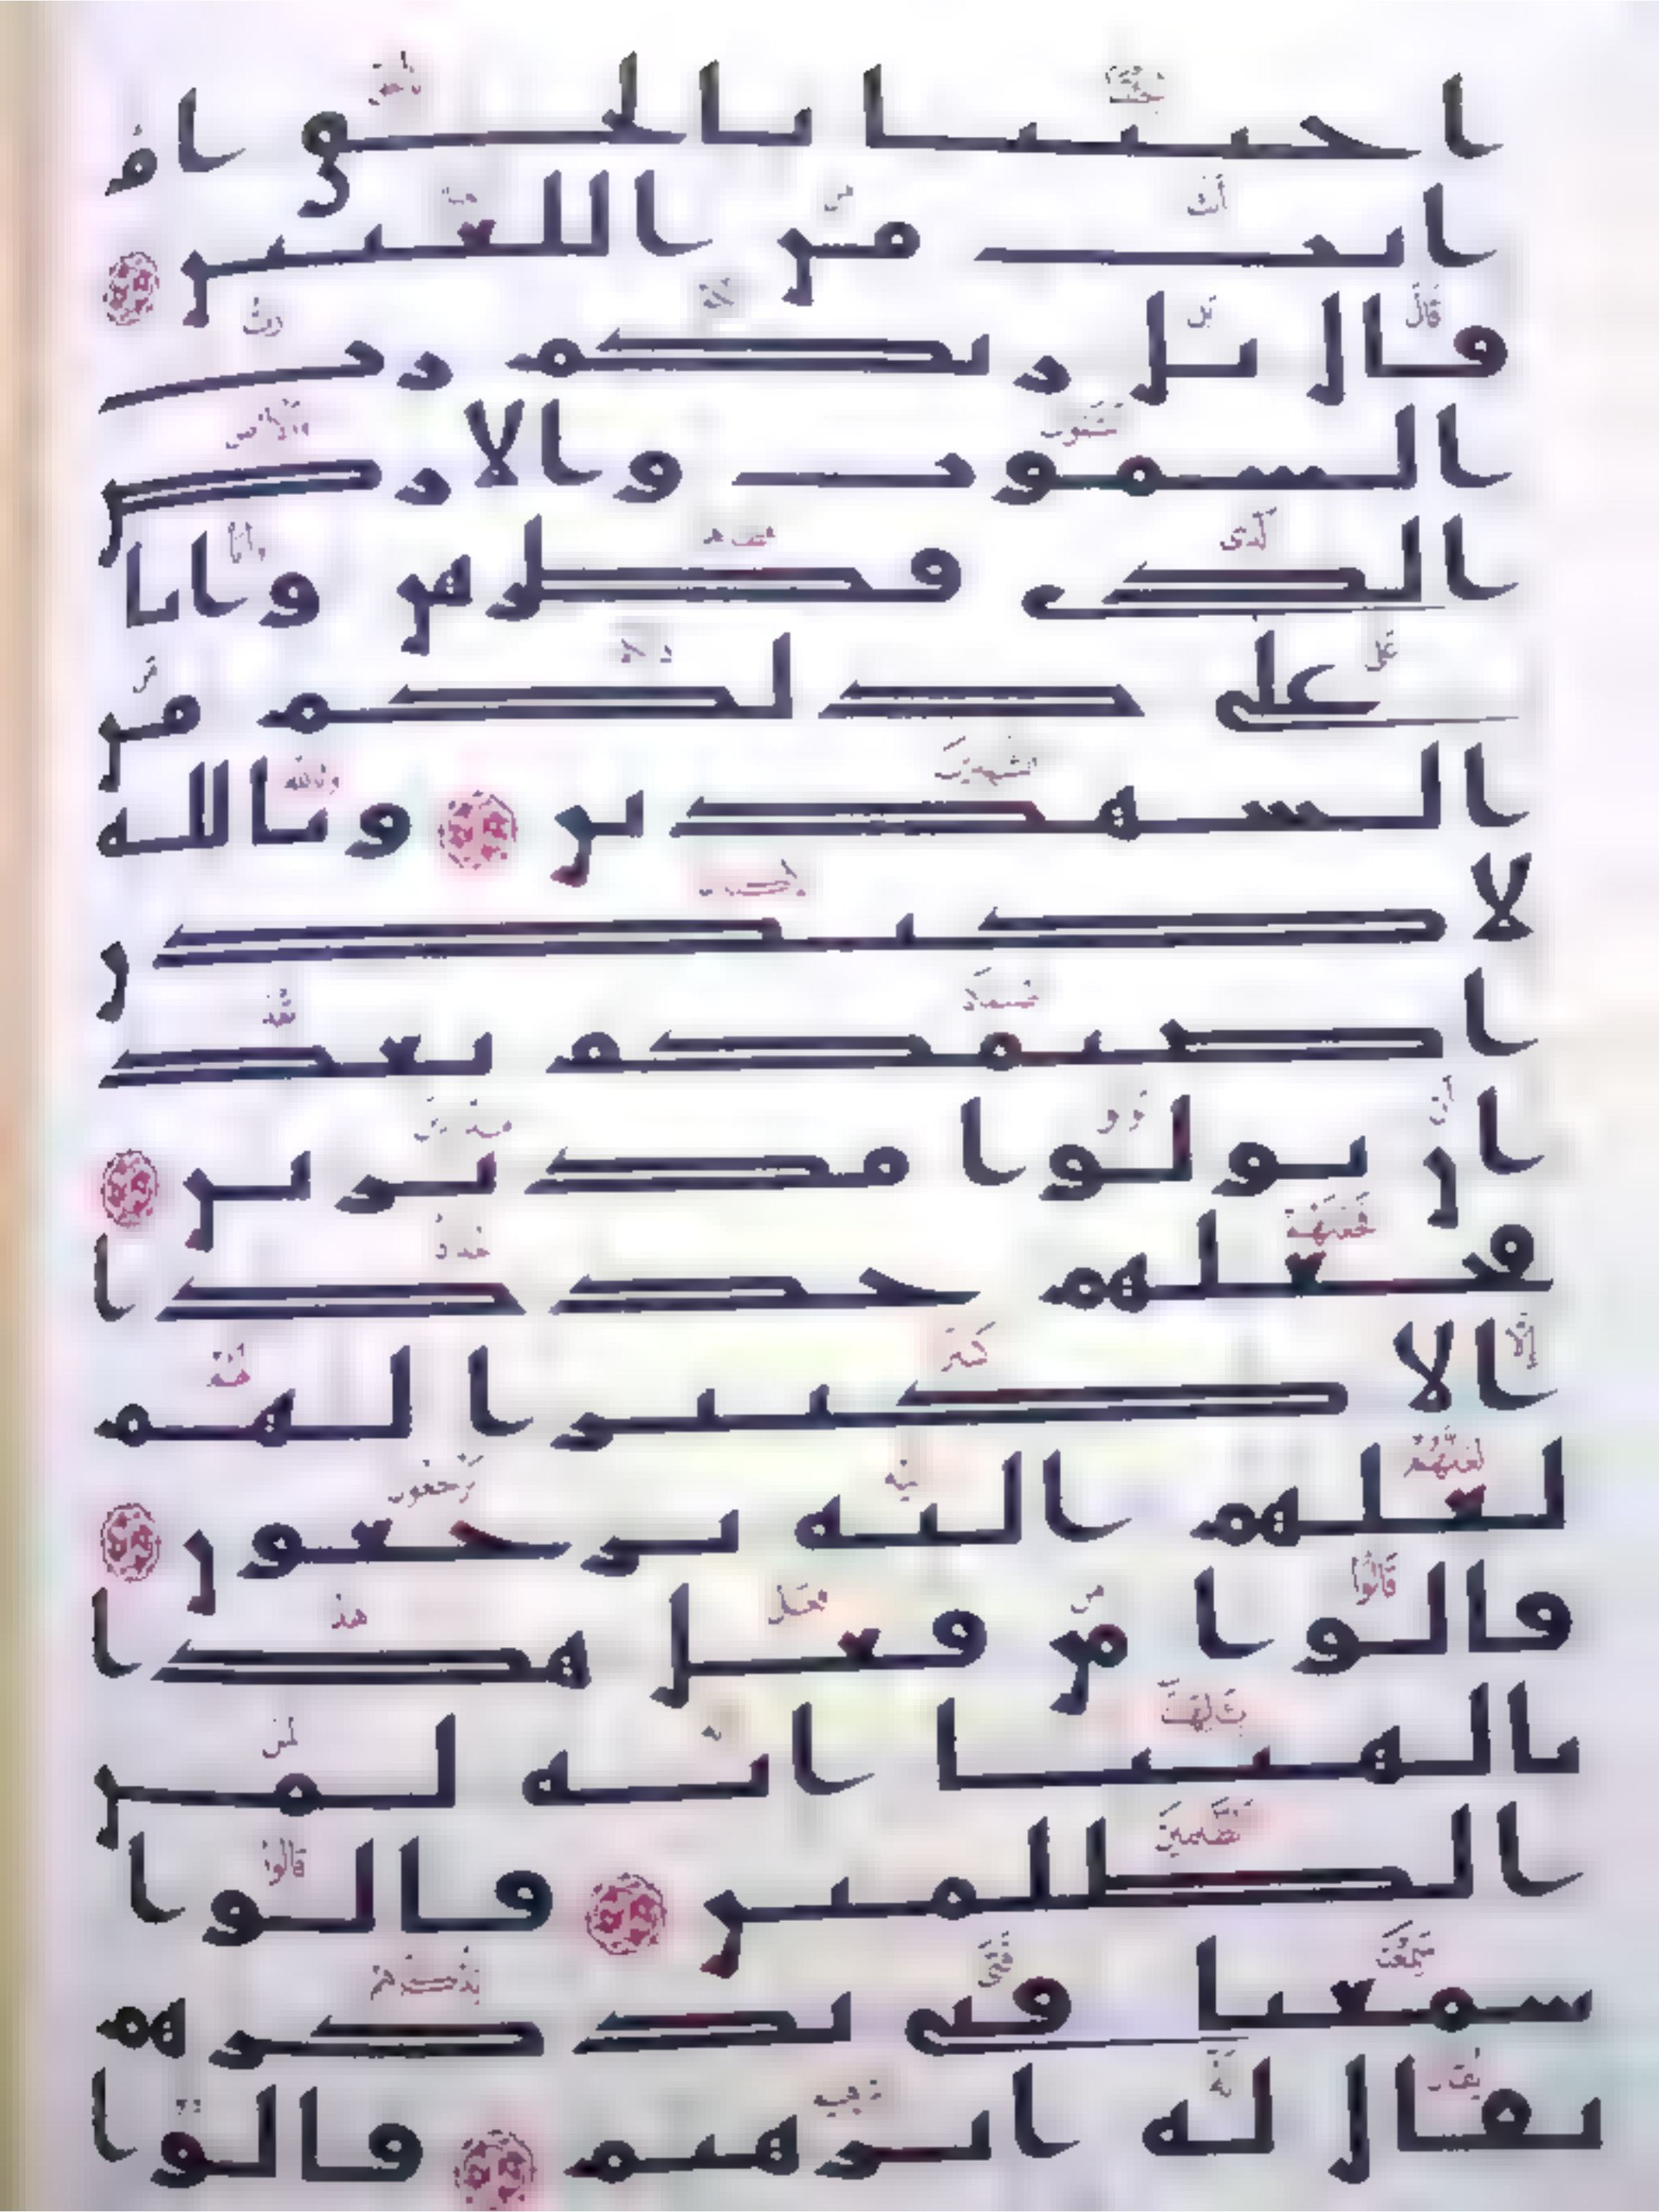 اجئتنا بالحق ام
انت من اللعبين
قال بل ربكم رب
السموت والارض
الذى فطرهن وانا
على ذلكم من
الشهدين وتالله
لاكيدن
اصنمكم بعد
ان تولوا مدبرين
فجعلهم جذذا
الا كبيرا لهم
لعلهم اليه يرجعون
قالوا من فعل هذا
بالهتنا انه لمن
الظلمين قالوا
سمعنا فتى يذكرهم
يقال له ابرهيم قالوا